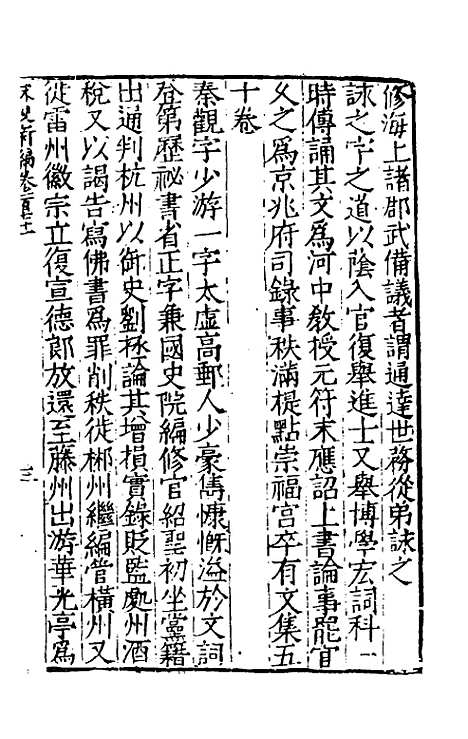 修海上諸郡武備議者謂通達世務從弟詠之
詠之字之道以蔭入官復舉進士又舉博學宏詞科一
時傳誦其文爲河中敎授元符末應詔上書論事罷官
久之爲京兆府司錄事秩滿提點崇福宮卒有文集五
十卷
秦觀字少游一字太虛高郵人少豪雋慷慨溢於文詞
登第歷祕書省正字兼國史院編修官紹聖初坐黨籍
出通判杭州以御史劉拯論其增損實錄貶監處州酒
稅又以謁告寫佛書爲罪削秩徙郴州繼編管橫州又
徙雷州徽宗立復宣德郎放還至藤州出游華光亭爲
宋史新編卷百七十一
三